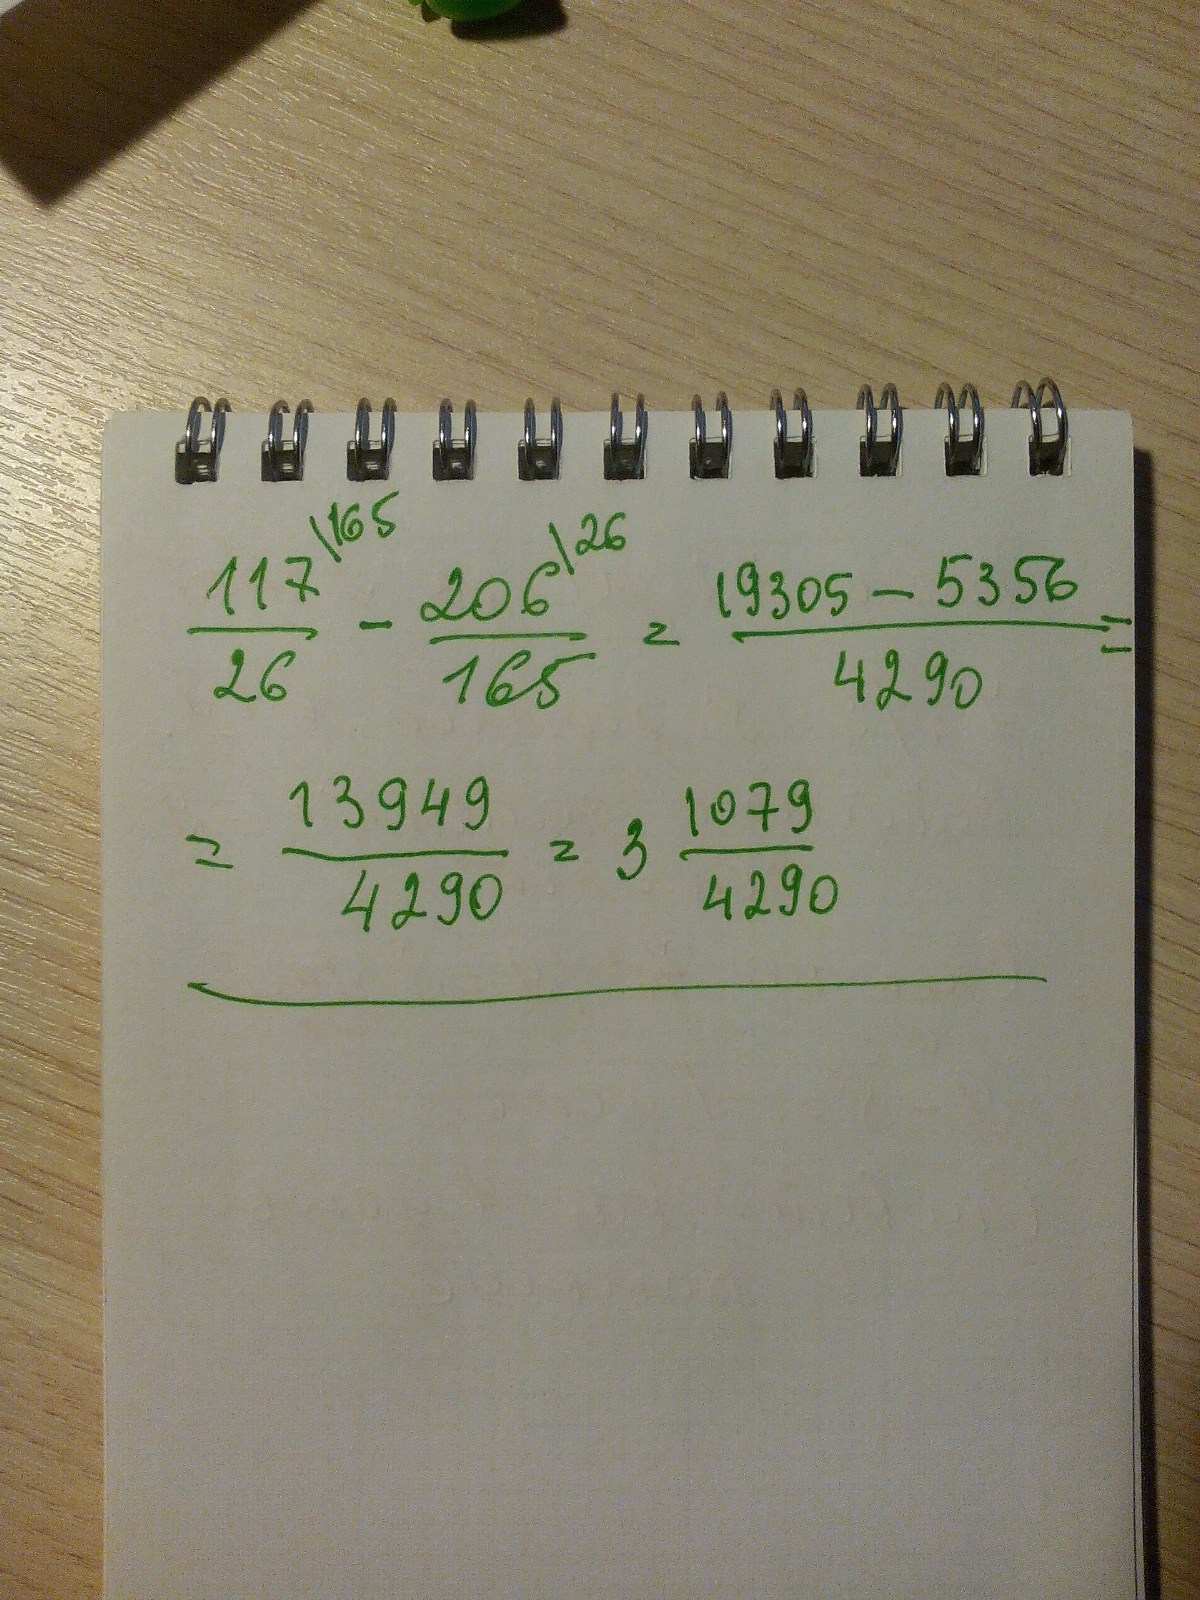 117\165 / 26 - 206\26 / 165 = 19305 - 5356 / 4290 =
= 13949 / 4290 = 3 1079 / 4290